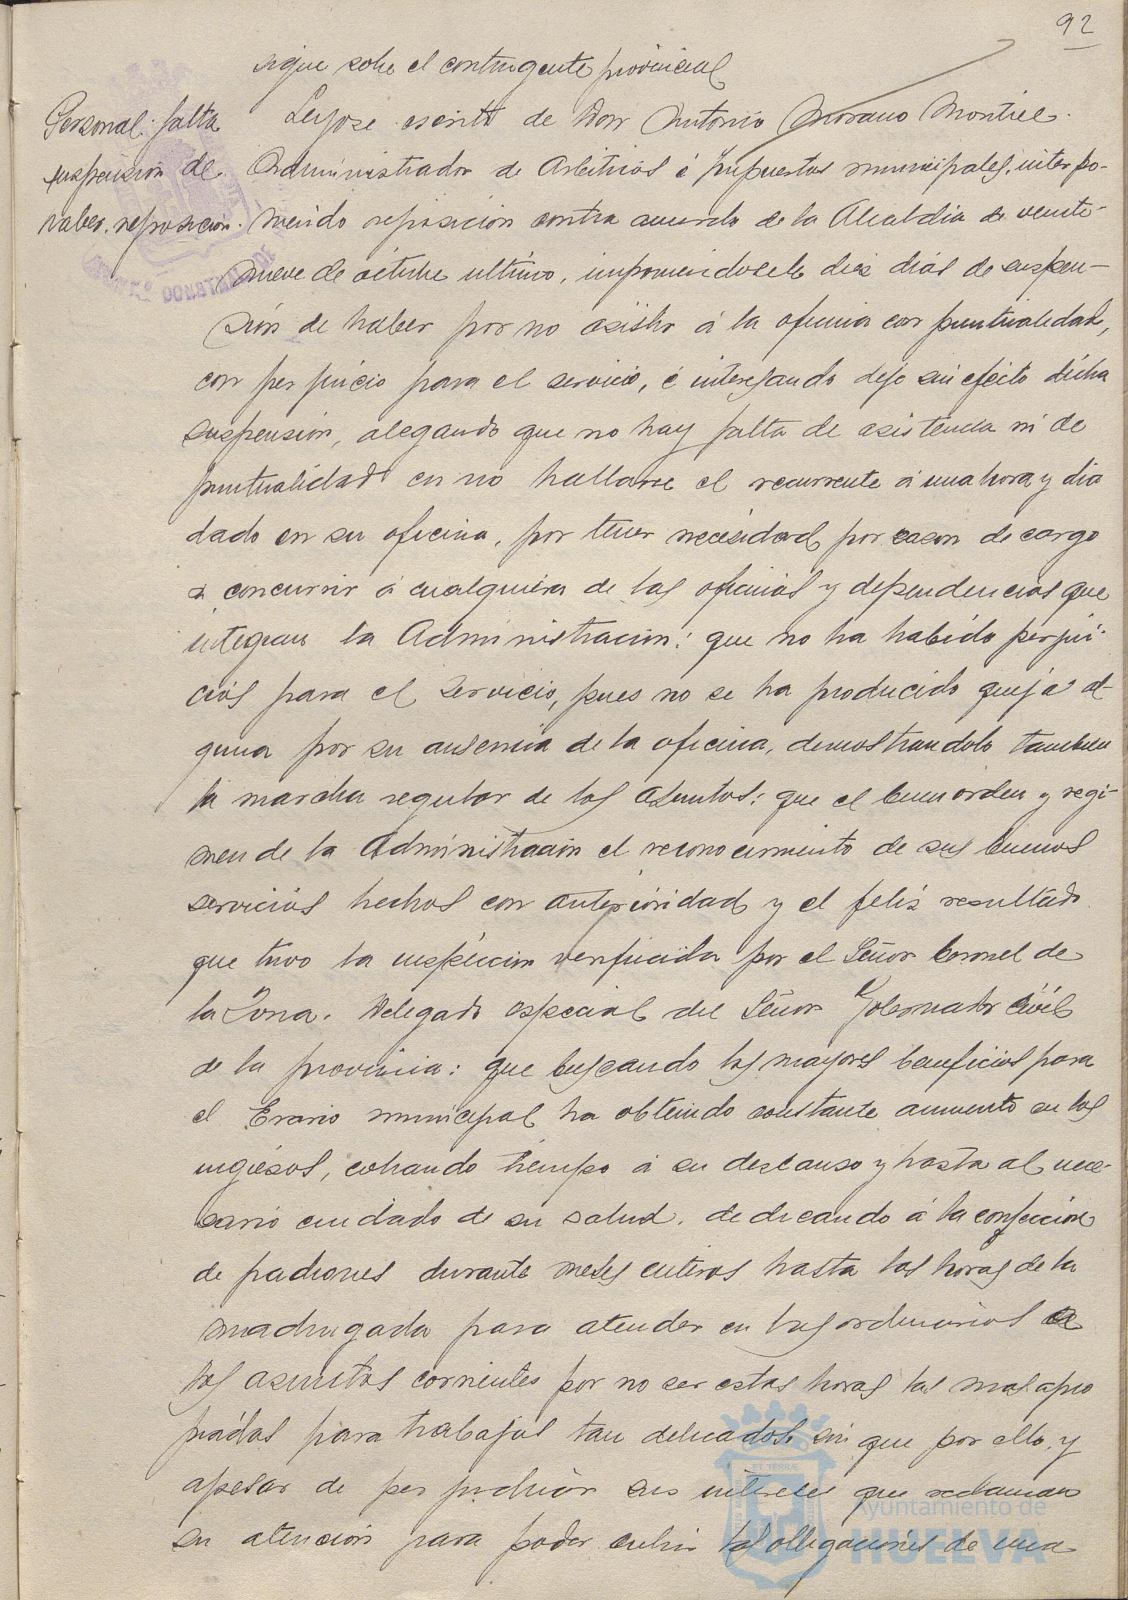 92
sigue sobre el contingente provincial
Personal. falta
suspensión de
haber. reposición.
Leyose escrito de Don Antonio Morano Montiel.
Administrador de Arbitrios é impuestos municipales, interpo-
niendo reposición contra acuerdo de la Alcaldia de veinte-
nueve de octubre ultimo, imponiendosele diez dias de suspen-
sión de haber por no asistir á la oficina con puntualidad,
con perjuicio para el servicio, é interesando deje sin efecto dicha
suspensión, alegando que no hay falta de asistencia ni de
puntualidad en no hallarse el recurrente á una hora y dia
dado en su oficina, por tener necesidad por razon de cargo
á concurrir á cualquiera de las oficinas y dependencias que
integran la Administración: que no ha habido perjui-
cios para el servicio, pues no se ha producido queja al-
guna por su ausencia de la oficina, demostrandolo tambien
la marcha regular de los asuntos: que el buen orden y regi-
men de la Administración el reconocimiento de sus buenos
servicios hechos con anterioridad y el feliz resultado
que tuvo la inspección verificada por el Señor Coronel de
la Zona. Delegado especial del Señor Gobernador Civil
de la provincia: que buscando los mayores beneficios para
el Erario municipal ha obtenido constante aumento en los
ingresos, robando tiempo á su descanso y hasta al nece-
sario cuidado de su salud. dedicando á la confección
de padrones durante meses enteros hasta las horas de la
madrugada para atender en las ordinarias a
los asuntos corrientes por no ser estas horas las mas apro
piadas para trabajos tan delicados, sin que por ello, y
apesar de perjudicar sus intereses que reclaman
su atención para poder cubrir las obligaciones de una
Ayuntamiento de
HUELVA